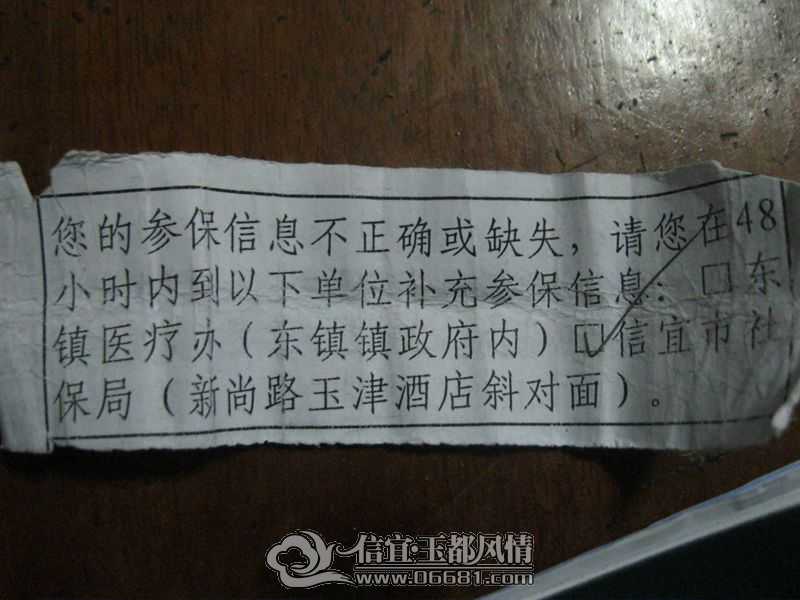 您的参保信息不正确或缺失，请您在48
小时内到以下单位补充参保信息：□东
镇医疗办（东镇镇政府内）☑信宜市社
保局（新尚路玉津酒店斜对面）。
信宜·玉都风情
www.06681.com